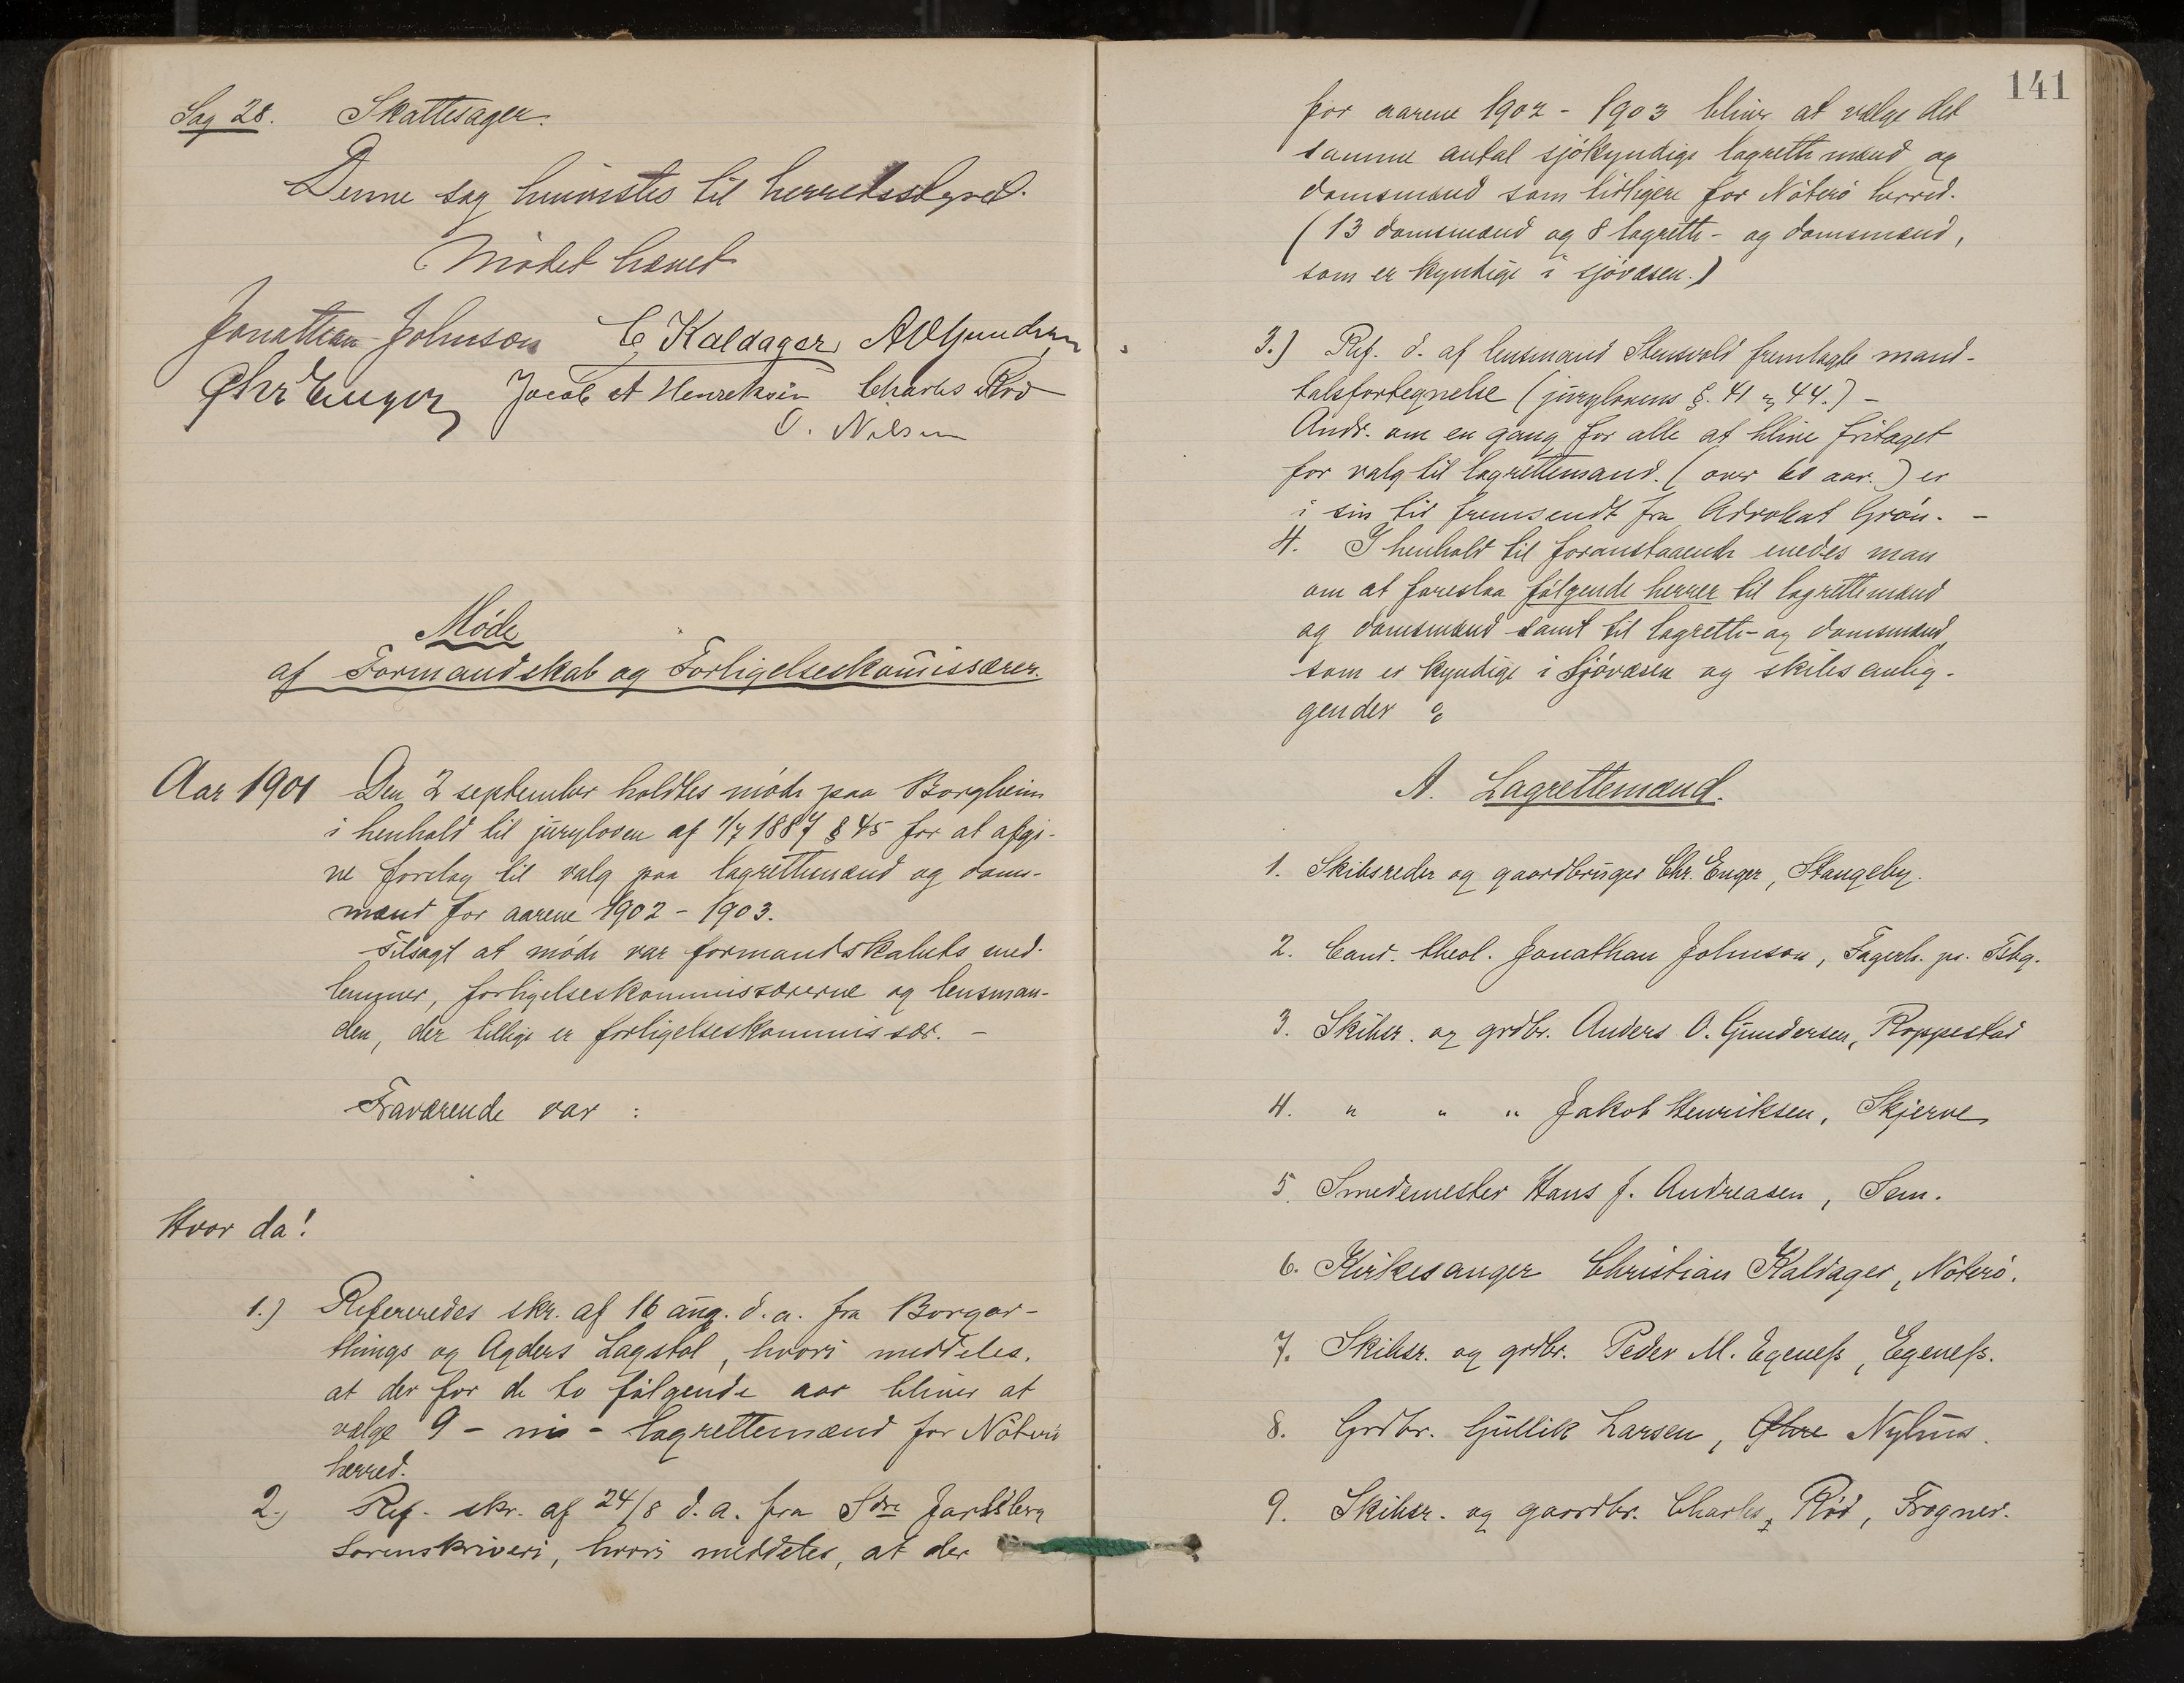 Sag 28. Skattesager.
Denne sag henvistes til herredsstyret.
Mødet hævet
Jonathan Johnson C Kaldager A O Gundersen
Chr Enger Jacob A Henriksen Charles Rød
O. Nilsen
Møde
af Formandskab og Forligelseskom̄issærer.
Aar 1901 Den 2 september holdtes møde paa Borgheim
i henhold til juryloven af 1/7 1887 § 45 for at afgi-
ve forslag til valg paa lagrettemænd og doms-
mænd for aarene 1902 - 1903.
Tilsagt at møde var formandskabets med-
lemmer, forligelseskommissærerne og lensman-
den, der tillige er forligelseskommissær. -
Fraværende var :
Hvor da!
1.) Refereredes skr. af 16 aug. d. a. fra Borgar-
things og Agders Lagstol, hvori meddeles,
at der for de to følgende aar bliver at
vælge 9 - ni - lagrettemænd for Nøterø
herred.
2.) Ref. skr. af 24/8 d. a. fra Sdre Jarlsberg
Sorenskriveri, hvori meddeles, at der
141
for aarene 1902 - 1903 bliver at vælge det
samme antal sjøkyndige lagrettemænd og
domsmænd som tidligere for Nøterø herred.
(13 domsmænd og 8 lagrette- og domsmænd,
som er kyndige i sjøvæsen.)
3.) Ref. d. af lensmand Stensvold fremlagte mand-
talsfortegnelse (jurylovens §. 41 og 44.) -
Andr. om en gang for alle at blive fritaget
for valg til lagrettemand. (over 60 aar.) er
i sin tid fremsendt fra Advokat Grøn. -
4. I henhold til foranstaaende enedes man
om at foreslaa følgende herrer til lagrettemænd
og domsmænd samt til lagrette- og domsmænd,
som er kyndige i sjøvæsen og skibsanlig-
gender :
A. Lagrettemænd.
1. Skibsreder og gaardbruger Chr. Enger, Stangeby.
2. Cand. theol. Jonathan Johnson, Fagerh. pr. Tsbg.
3. Skibsr. og grdbr. Anders O. Gundersen, Roppestad
4. " " " Jakob Henriksen, Skjerve
5. Smedemester Hans J. Andreasen, Sem.
6. Kirkesanger Christian Kaldager, Nøterø.
7. Skibsr. og grdbr. Peder M. Egeness, Egeness.
8. Grdbr. Gullik Larsen, Øvre Nyhus.
9. Skibsr. og gaardbr. Charles Rød, Frogner.